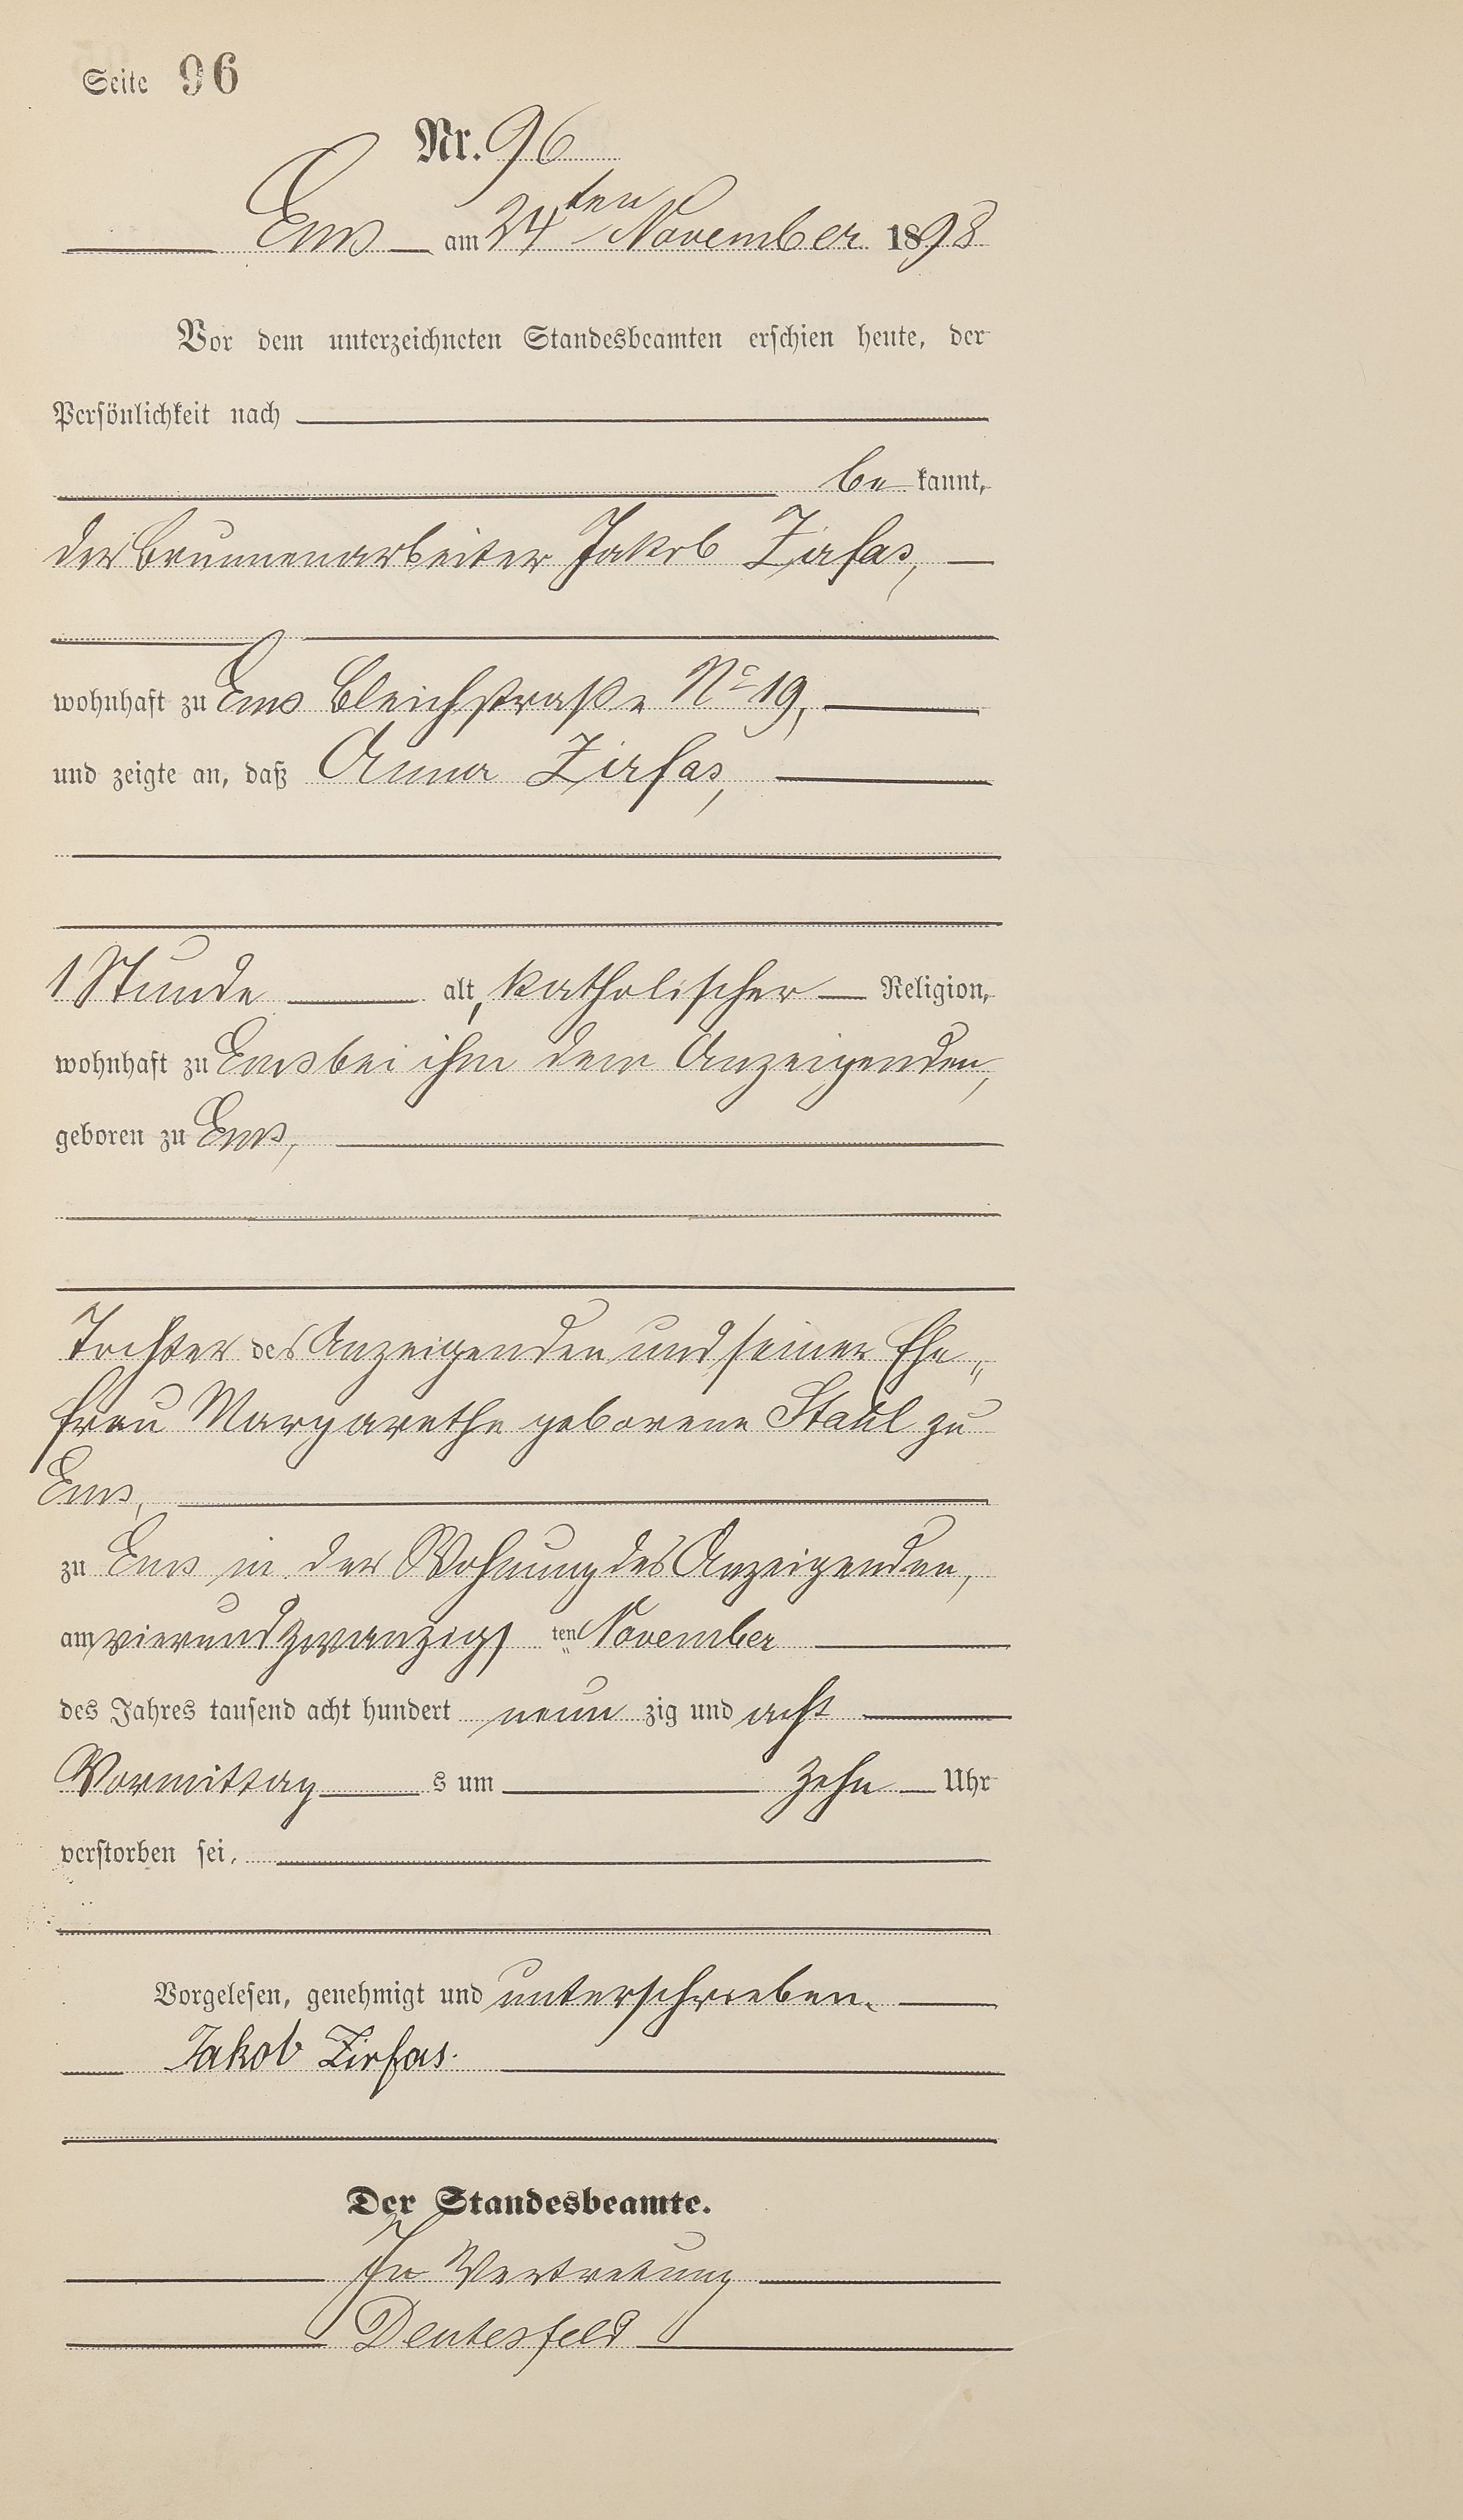 Seite 96
Nr. 96
Ems am 24ten November 1898
Vor dem unterzeichneten Standesbeamten erschien heute, der
Persönlichkeit nach
be kannt,
der Brunnenarbeiter Jakob Zirfas,
wohnhaft zu Ems Bleichstraße No 19,
und zeigte an, daß Anna Zirfas,
1 Stunde alt, katholischer Religion,
wohnhaft zu Ems bei ihm dem Anzeigenden,
geboren zu Ems,
Tochter des Anzeigenden und seiner Ehe„
frau Margarethe geborene Stahl zu
Ems,
zu Ems in der Wohnung des Anzeigenden,
am vierundzwanzigs ten November
des Jahres tausend acht hundert neun zig und acht
Vormittag s um zehn Uhr
verstorben sei.
Vorgelesen, genehmigt und unterschrieben.
Jakob Zirfas.
Der Standesbeamte.
In Vertretung
Deutesfeld